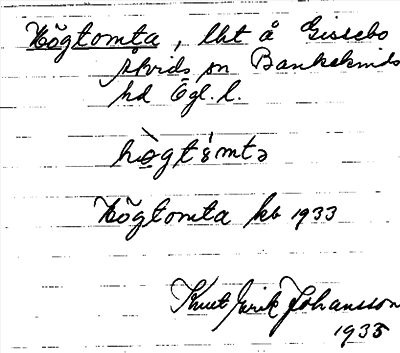 Högtomta, lht å Gissebo
Åkvids sn Bankekinds
hd Ögl. l.
hògtómtə
Högtomta kb 1933
Knut Erik Johansson
1935